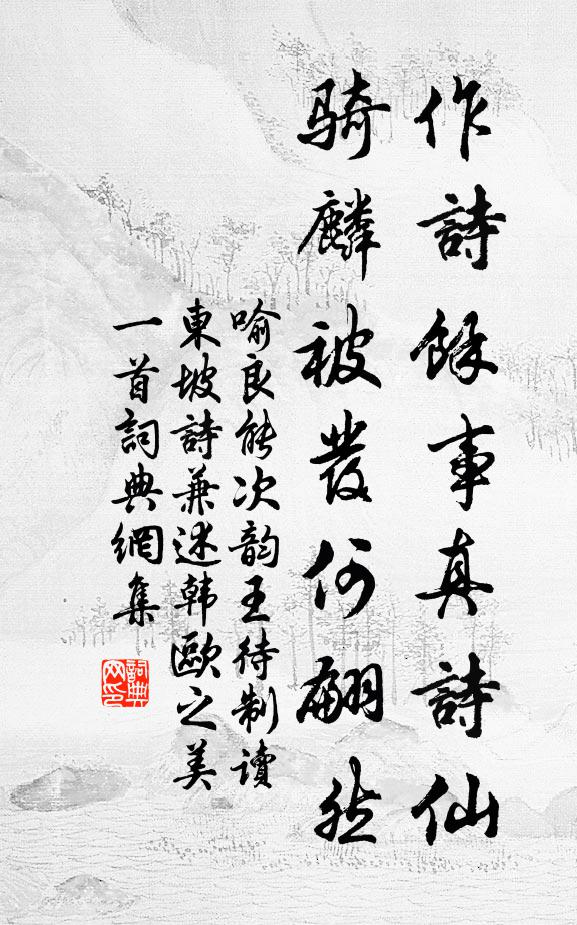 作詩餘事真詩仙
騎麟被發何翩然
喻良能次韵王待制讀
東坡詩兼述韩歐之美
一首詞典網集
詞典
网印